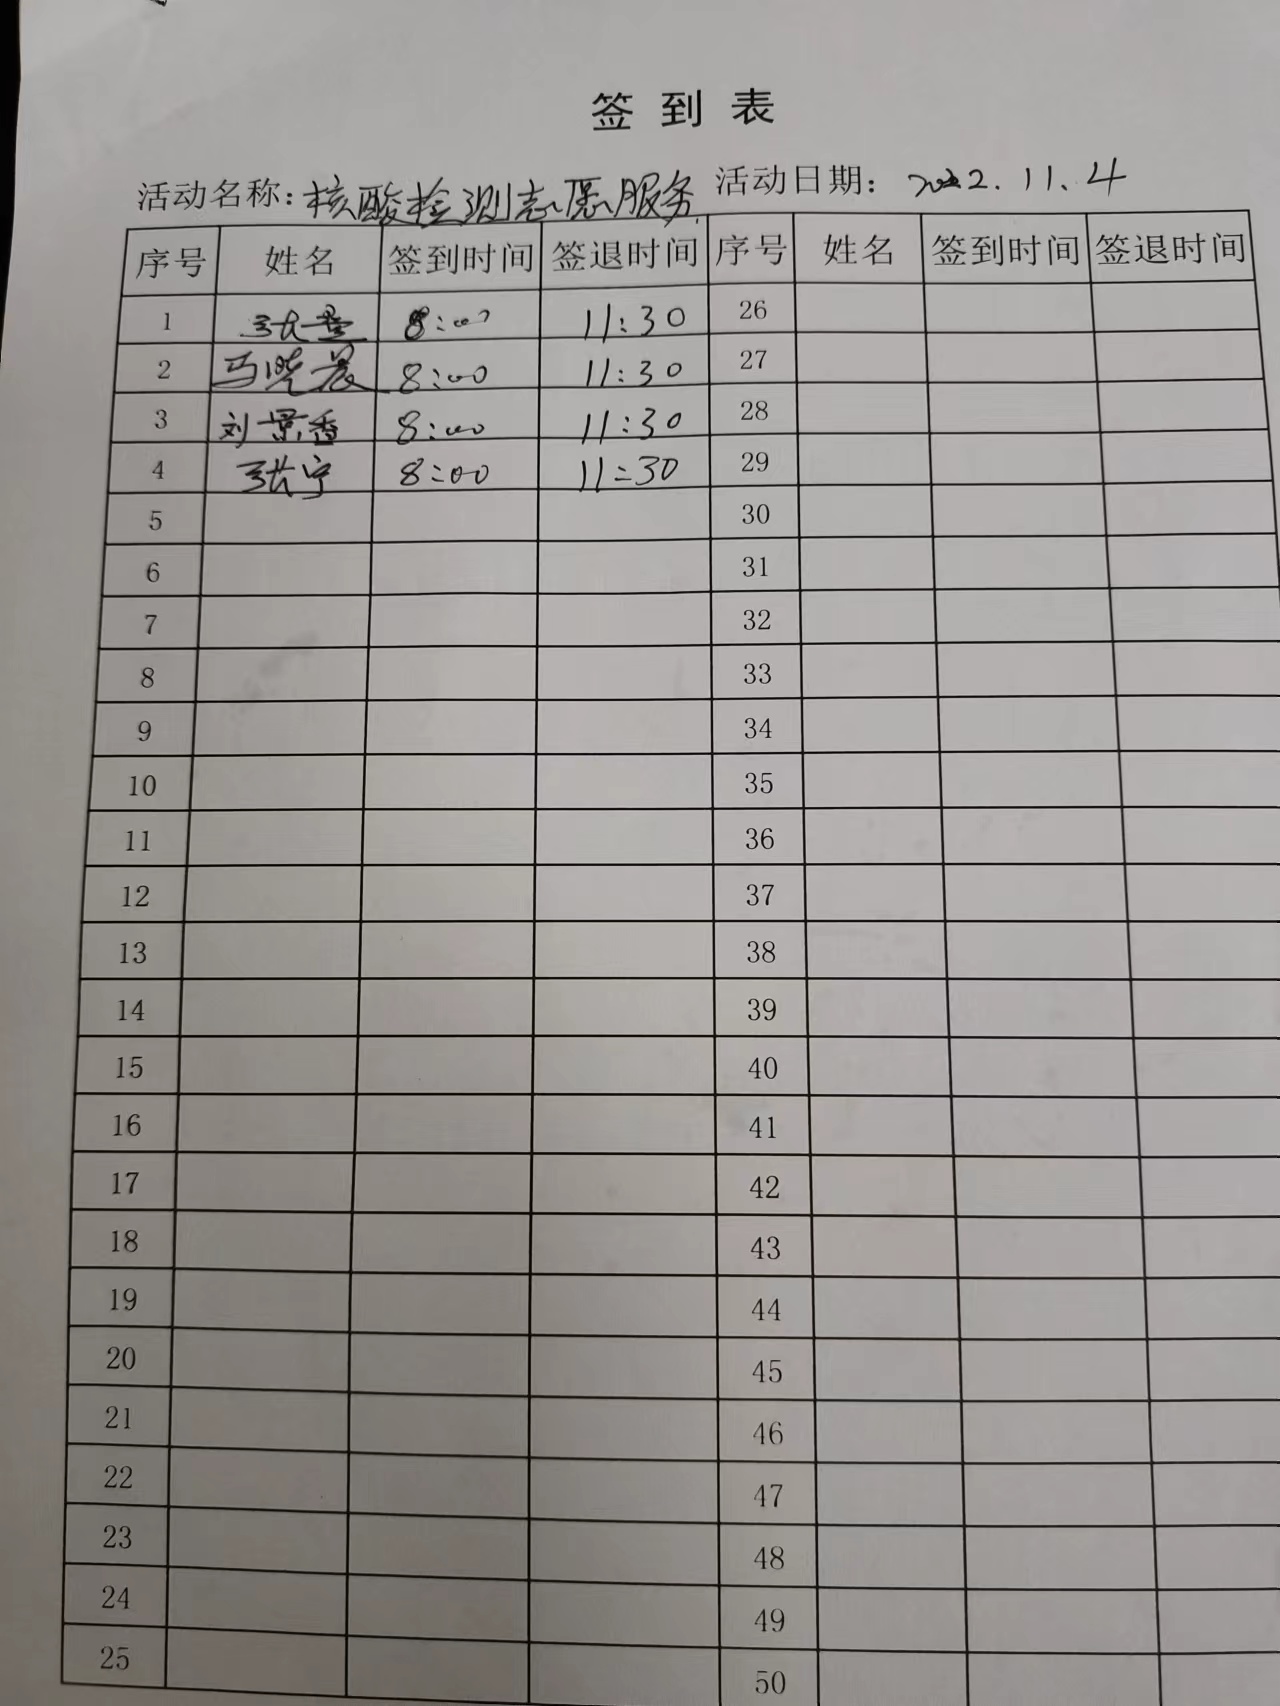 签到表
活动名称: 核酸检测志愿服务 活动日期: 2022.11.4
序号 姓名 签到时间 签退时间 序号 姓名 签到时间 签退时间
1 张 8:00 11:30 26
2 马晓晨 8:00 11:30 27
3 刘景香 8:00 11:30 28
4 张宁 8:00 11:30 29
5 30
6 31
7 32
8 33
9 34
10 35
11 36
12 37
13 38
14 39
15 40
16 41
17 42
18 43
19 44
20 45
21 46
22 47
23 48
24 49
25 50